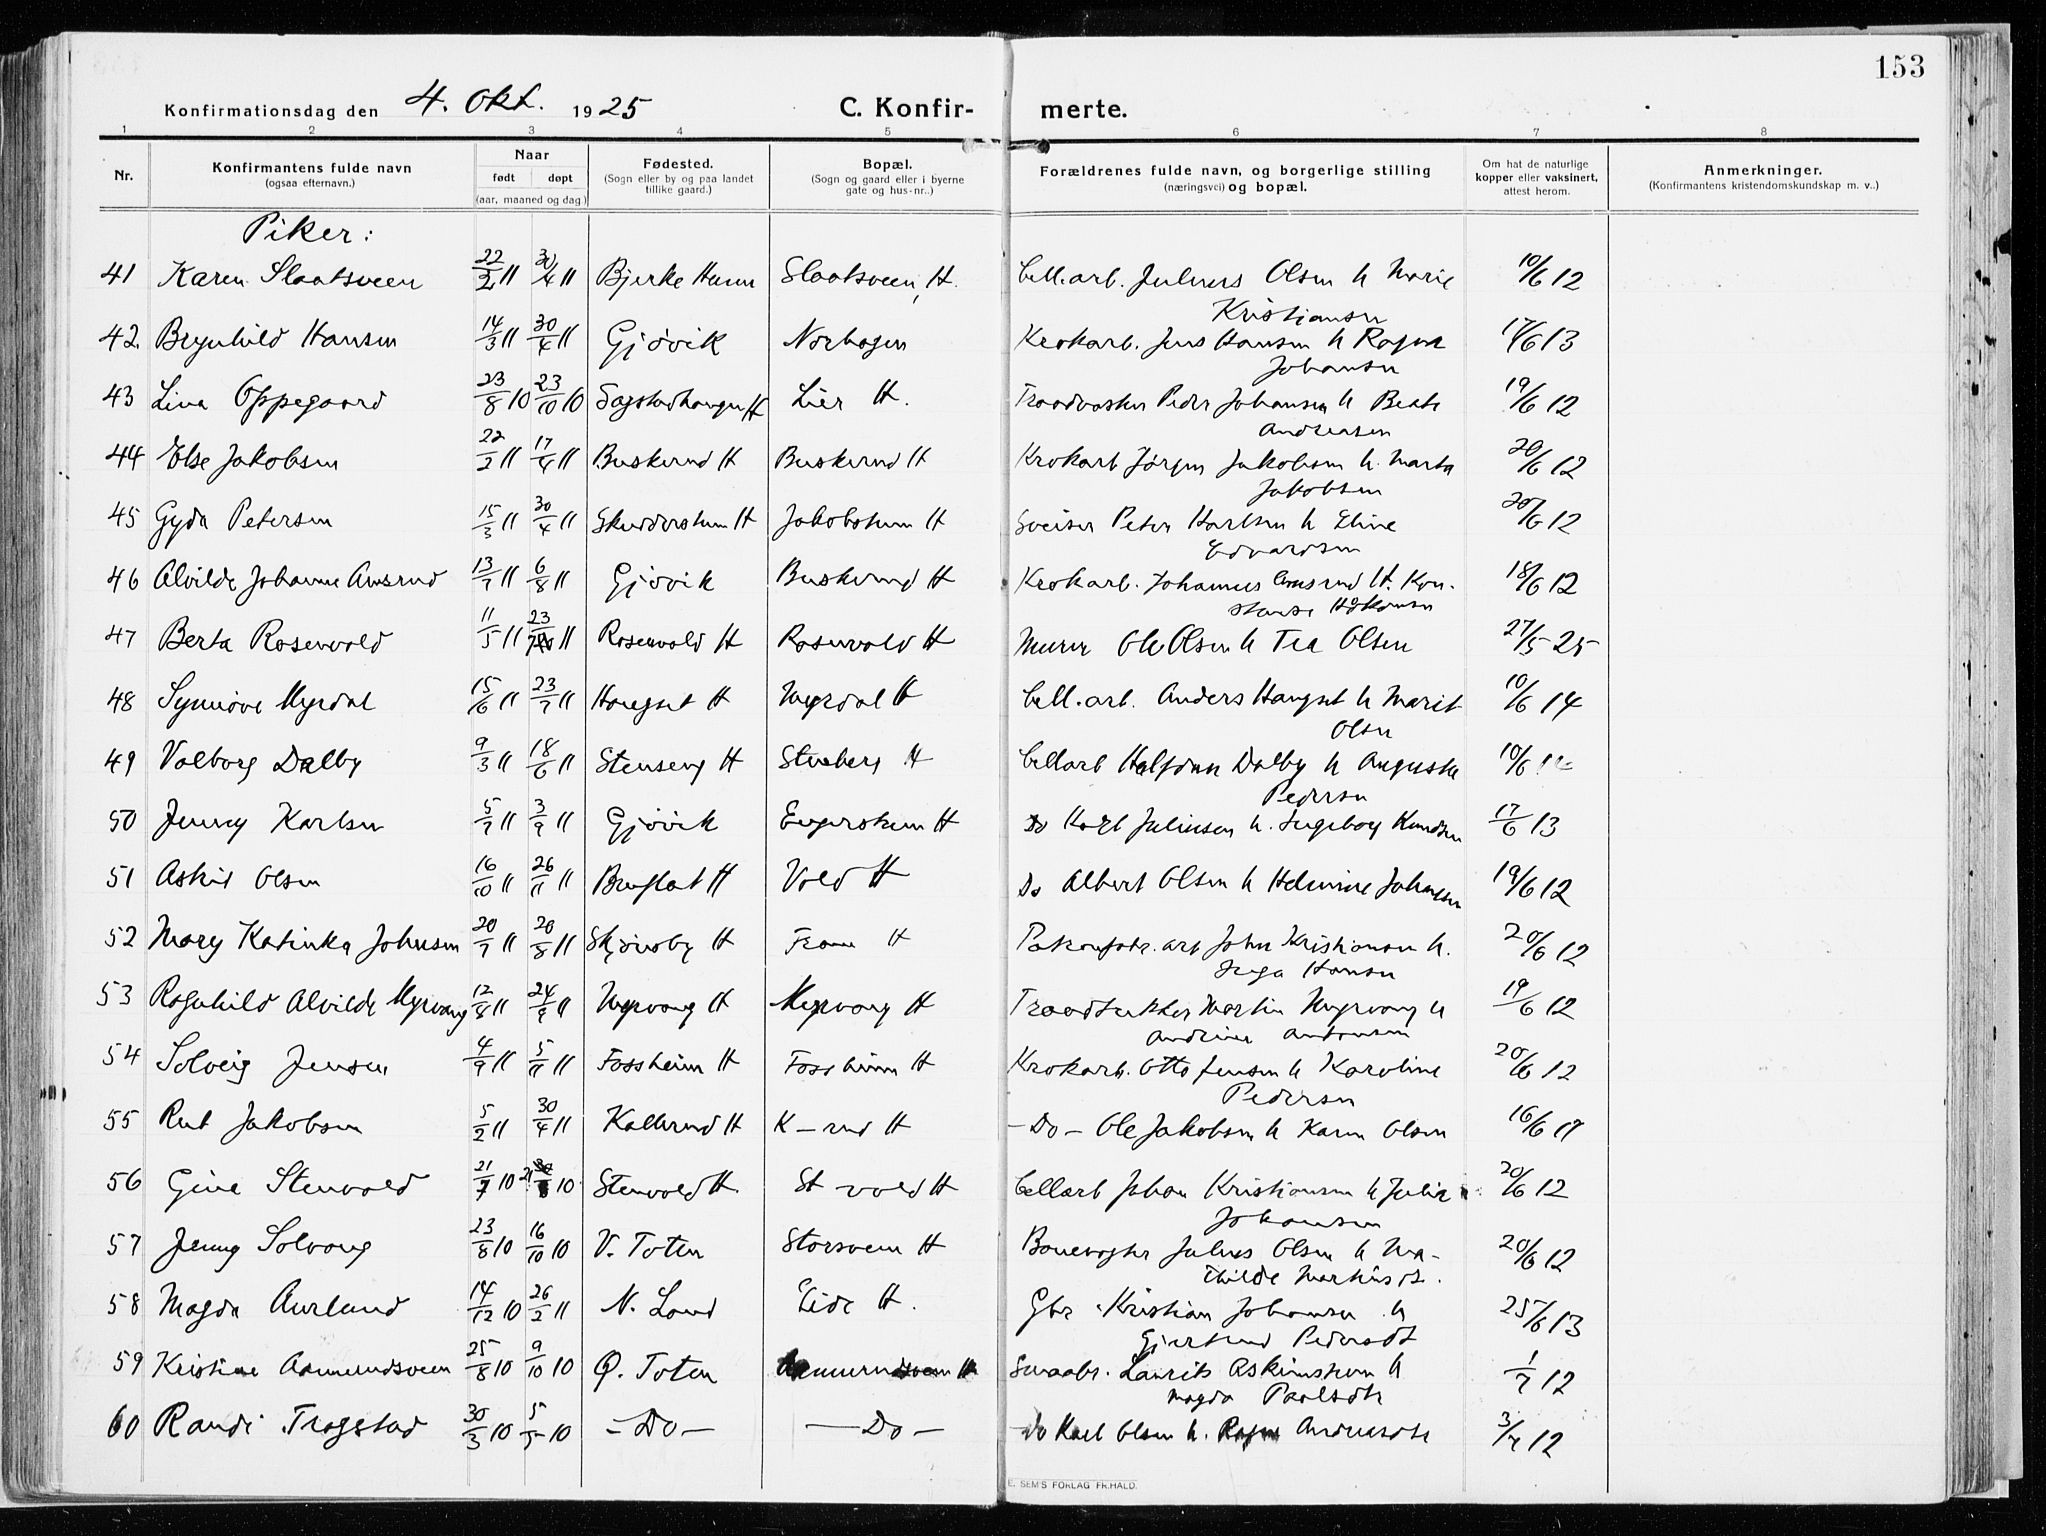 153
Konfirmationsdag den 4. Okt. 1925 C. Konfir- merte.
1 2 3 4 5 6 7 8
Nr. Konfirmantens fulde navn (ogsaa efternavn.) Naar født døpt (aar, maaned og dag.) Fødested. (Sogn eller by og paa landet tillike gaard.) Bopæl. (Sogn og gaard eller i byerne gate og hus-nr..) Forældrenes fulde navn, og borgerlige stilling (næringsvei) og bopæl. Om hat de naturlige kopper eller vaksinert, attest herom. Anmerkninger. (Konfirmantens kristendomskundskap m. v..)
Piker:
41 Karen Slaatsveen 22/2 11 30/4 11 Bjerke Slaatsveen, H. Cell.arb. Julius Olsen h Marie 10/6 12
Kristiansen
42. Brynhild Hansen 14/3 11 30/4 11 Gjövik Norhagen Krokarb. Jens Hansen h Ragna 17/6 13
Johansen
43 Lina Oppegaard 23/8 10 23/10 10 Lier H. Peder Johansen h Beate 19/6 12
Andreasen
44 Else Jakobsen 22/2 11 17/4 11 Buskerud H Buskerud H Krokarb Jörgen Jakobsen h. Marta 20/6 12
Jakobsen
45 Gyda Petersen 15/3 11 30/4 11 H H Sveiser Peter Karlsen h Eline 20/6 12
Edvardsen
46 Alvilde Johanne Amsrud 13/7 11 6/8 11 Gjövik Buskerud H Krokarb. Johannes Amsrud H. Kon-
18/6 12
stanse Håkonsen
47 Berta Rosenvold 11/5 11 23/7 11 Rosenvold H Rosenvold H Murer Ole Olsen h Tea Olsen 27/5 25
48 Synnöve Myrdal 15/6 11 23/7 11 Haugset H Myrdal H Cell.arb. Anders Haugset h Marit 10/6 14
Olsen
49 Valborg Dalby 9/3 11 18/6 11 Stenseng H Stenberg H Cellarb Halfdan Dalby h Auguste 10/6
Pedersen
50 Jenny Karlsen 5/7 11 3/9 11 Gjövik H Do Karl Juliusen h. Ingeborg Knudsen 17/6 13
51 Ashil Olsen 16/10 11 26/11 11 Bruflat H Vold H Do Albert Olsen h Helmine Johansen 19/6 12
52 Mary Katinka Johnsen 20/7 11 20/8 11 Skjönsby H H arb John Kristiansen h. 20/6 12
Inga Hansen
53 Ragnhild Alvilde Myrvang 12/8 11 24/9 11 Myrvang H Myrvang H Traadtrekker Martin Myrvang h 19/6 12
Andrine Antonsen
54 Solveig Jensen 4/9 11 5/11 11 Fossheim H Fossheim H Krokarb. Otto Jensen h Karoline 20/6 12
Pedersen
55 Rut Jakobsen 5/2 11 30/4 11 Kallerud H K-rud H - Do - Ole Jakobsen h Karen Olsen 16/6 17
56 Gina Stenvold 21/7 10 10 Stenvold H. St-vold H Cellarb Johan Kristiansen h Julie 20/6 12
Johansen
57 Jenny Solvang 23/8 10 16/10 10 V. Toten Storsveen H Banevogter Julius Olsen h Ma- 20/6 12
thilde
58 Magda Aurland 14/12 10 26/2 11 N. Land Eide H. Gbr. Kristian Johansen h 25/6 13
Gjertrud Pedersdt
59 Kristine Aamundsveen 25/8 10 9/10 10 Ö. Toten Aamundsveen H Smaabr. Laurits h 1/7 12
Magda Paulsdtr
60 Randi Trogstad 30/3 10 5/5 10 - Do - - Do - do Karl Olsen h. 3/7 12
E. SEM'S FORLAG FR.HALD.